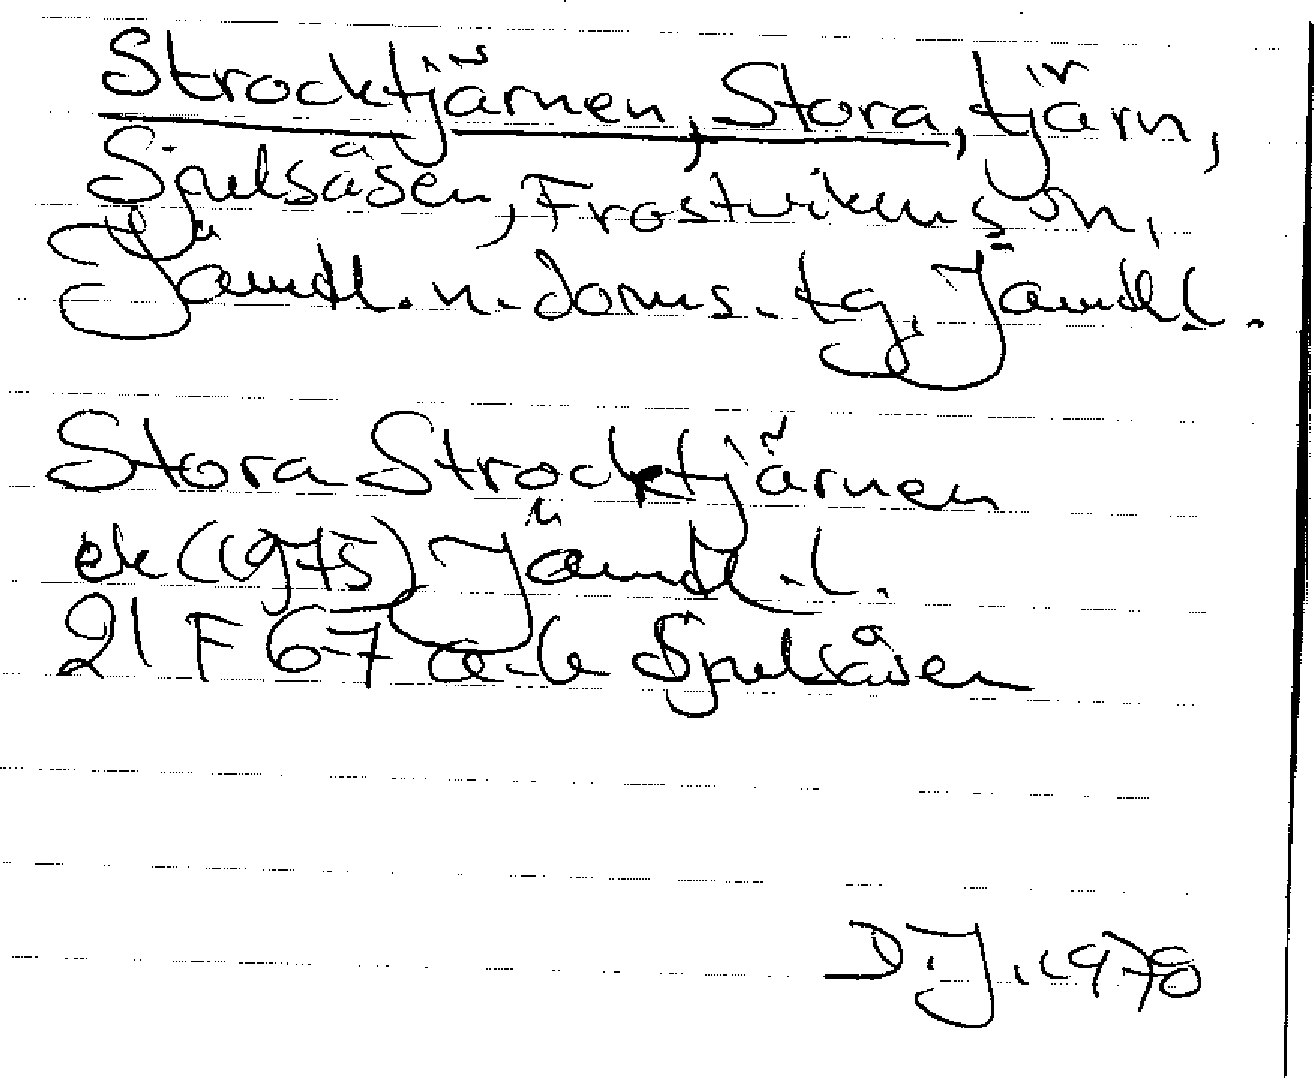 Strocktjärnen, Stora, tjärn,
Sjulsåsen, Frostvikens sn,
Jämtl. n. doms. tg, Jämtl. l.
Stora Strocktjärnen
ek (1975) Jämtl. l.
21 F 6-7 a-b Sjulsåsen
D.J. 1978